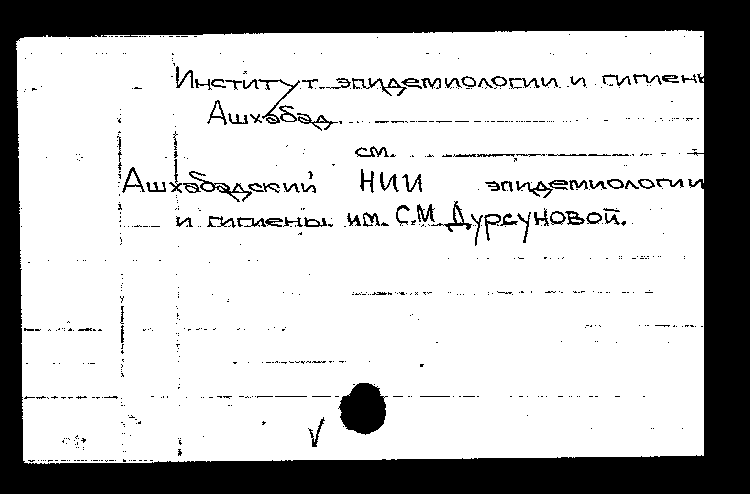 Институт эпидемиологии и гигиены
Ашхабад.
см.
Ашхабадский НИИ эпидемиологии
и гигиены им. С.М. Дурсуновой.